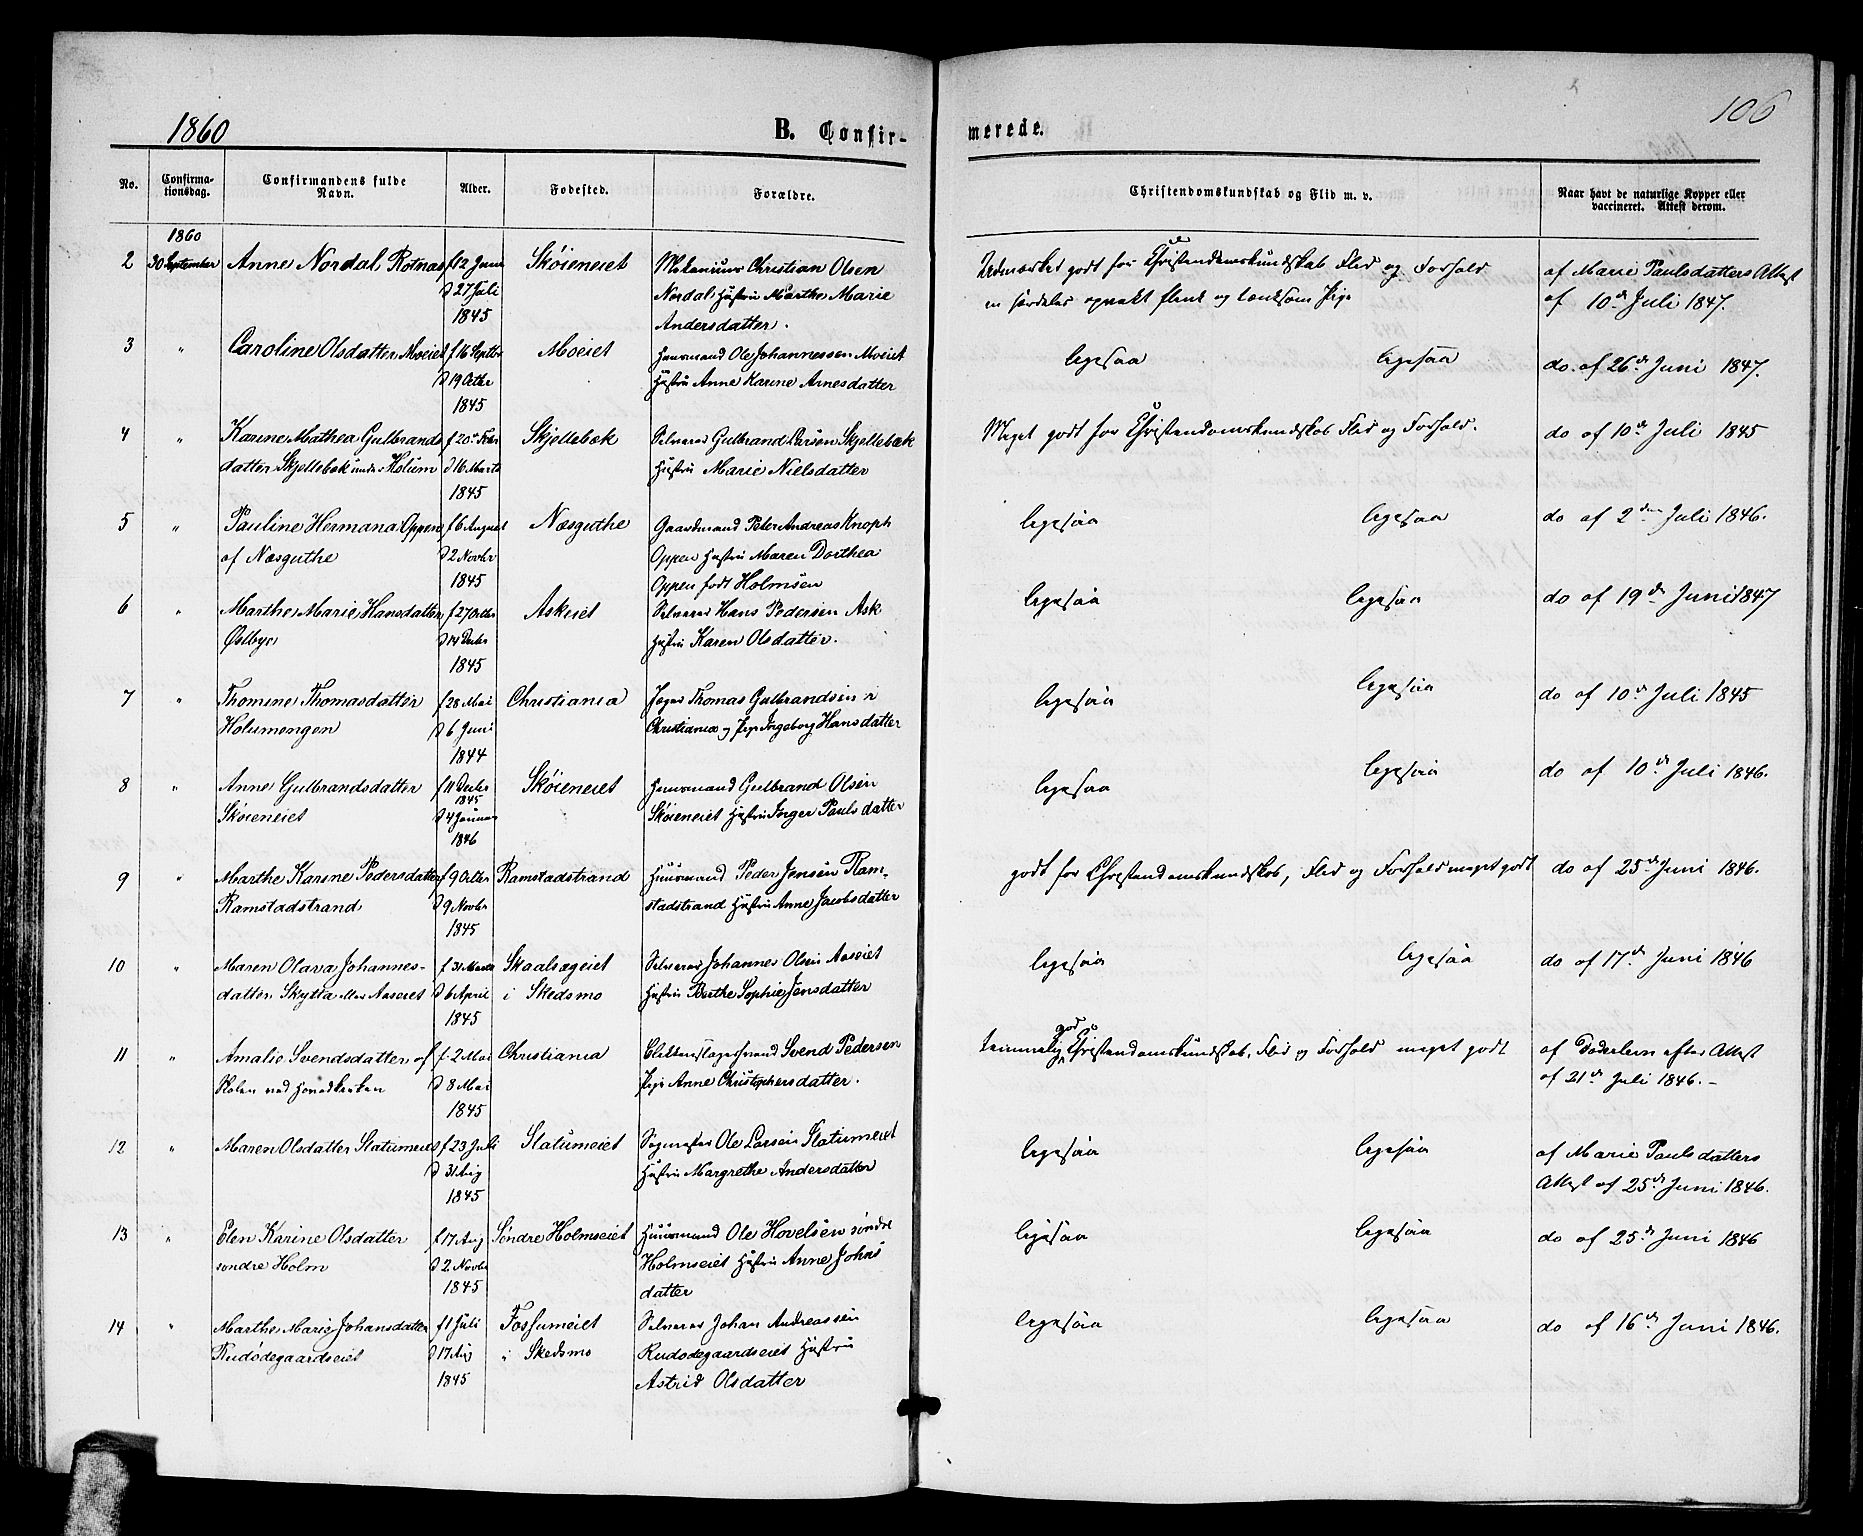 1860
B. Confir-
merede.
106
No.
Confirma-
tionsdag.
Confirmandens fulde
Navn.
Alder.
Fødested.
Forældre.
Christendomskundskab og Flid m. v.
Naar havt de naturlige Kopper eller
vaccineret. Attest derom.
1860
2 30 September Anne Nordal Rotnas f 12 Juni Skøieneiet Christian Olsen
d 27 Juli Nordal Hustru Marthe Marie
1845 Andersdatter.
Udmærket godt for Christendomskundskab Flid og Forhold af Marie Paulsdatters Attest
en særdeles opvakt flink og lærd­som Pige af 10de Juli 1847.
3 " Caroline Olsdatter Moeiet f 16 Septbr Moeiet Huusmand Ole Johannessen Moeiet
d 19 Octbr Hustru Anne Karine Arnesdatter
1845
ligesaa ligesaa do af 26de Juni 1847.
4 " Karine Mathea Gulbrands f 20de Febr Skjellebæk Selveier Gulbrand Larsen Skjellebæk
datter Skjellebæk under Holum d 16 Marts Hustru Marie Nielsdatter
1845
Meget godt for Christendomskundskab Flid og Forhold. do af 10de Juli 1845
5 " Pauline Hermana Oppen f 6 August Næsguthe Gaardmand Peter Andreas Knoph
af Næsguthe d 2 Novbr Oppen Hustru Maren Dorthea
1845 Oppen født Holmsen
ligesaa ligesaa do af 2den Juli 1846.
6 " Marthe Marie Hansdatter f 27 Octbr Askeiet Selveier Hans Pedersen Ask
Østbye d 14 Decbr Hustru Karen Olsdatter.
1845
ligesaa ligesaa do af 19de Juni 1847
7 " Thomine Thomasdatter f 28 Mai Christiania Thomas Gulbrandsen i
Holumengen d 6 Juni Christiania og Pige Ingeborg Hansdatter
1844
ligesaa ligesaa do af 10de Juli 1845
8 " Anne Gulbrandsdatter f 11 Decbr Skøieneiet Huusmand Gulbrand Olsen
1845
Skøieneiet d 4 Januar Skøieneiet Hustru Inger Paulsdatter
1846
ligesaa ligesaa do af 10de Juli 1846.
9 " Marthe Karine Pedersdatter f 9 Octbr Ramstadstrand Huusmand Peder Jensen Ram-
Ramstadstrand d 9 Novbr stadstrand Hustru Anne Jacobsdatter
1845
godt for Christendomskundskab, Flid og Forhold meget godt do af 25de Juni 1846.
10 " Maren Olava Johannes- f 31 Marts Skaalsageiet Selveier Johannes Olsen Aaseiet
datter Skytta eller Aaseiet d 6 April i Skedsmo Hustru Berthe Sophie Jensdatter
1845
ligesaa ligesaa do af 17de Juni 1846
11 " Amalie Svendsdatter af f 2 Mai Christiania Svend Pedersen
Skolen ved d 8 Mai Pige Anne Christophersdatter.
1845
god
temmelig Christendomskundskab, Flid og Forhold meget godt af Døderlein efter Attest
af 21de Juli 1846.-
12 " Maren Olsdatter Slatumeiet f 23 Juli Slatumeiet Sagmester Ole Larsen Slatumeiet
d 31 Aug Hustru Margrethe Andersdatter
1845
ligesaa ligesaa af Marie Paulsdatters
Attest af 25de Juni 1846.
13 " Elen Karine Olsdatter f 17 Aug Søndre Holmseiet Huusmand Ole Hovelsen søndre
søndre Holm d 2 Novbr Holmseiet Hustru Anne Johns
1845 datter
ligesaa ligesaa do af 25de Juni 1846
14 " Marthe Marie Johansdatter f 1 Juli Fossumeiet Selveier Johan Andreassen
Rudødegaardseiet d 17 Aug i Skedsmo Rudødegaardseiet Hustru
1845 Astrid Olsdatter
ligesaa ligesaa do af 16de Juni 1846.